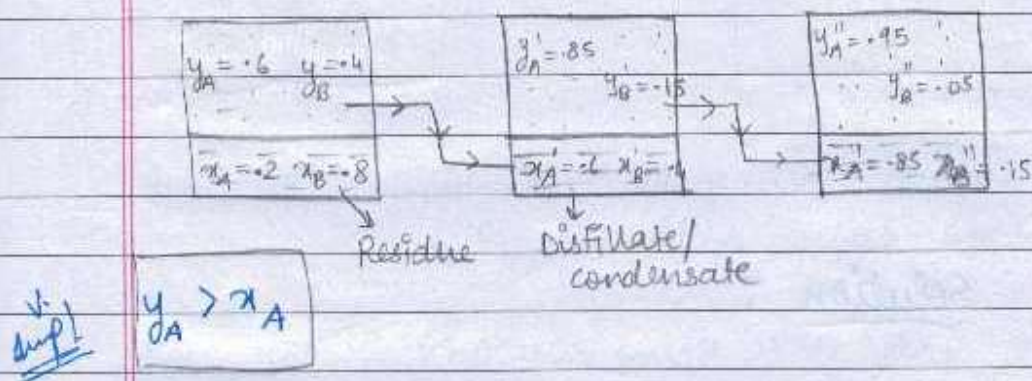 y_A = .6 y_B = .4
x_A = .2 x_B = .8
y'_A = .85
y'_B = .15
x'_A = .6 x'_B = .4
y''_A = .95
y''_B = .05
x''_A = .85 x''_B = .15
Residue
Distillate/
condensate
V. Imp!
y_A > x_A